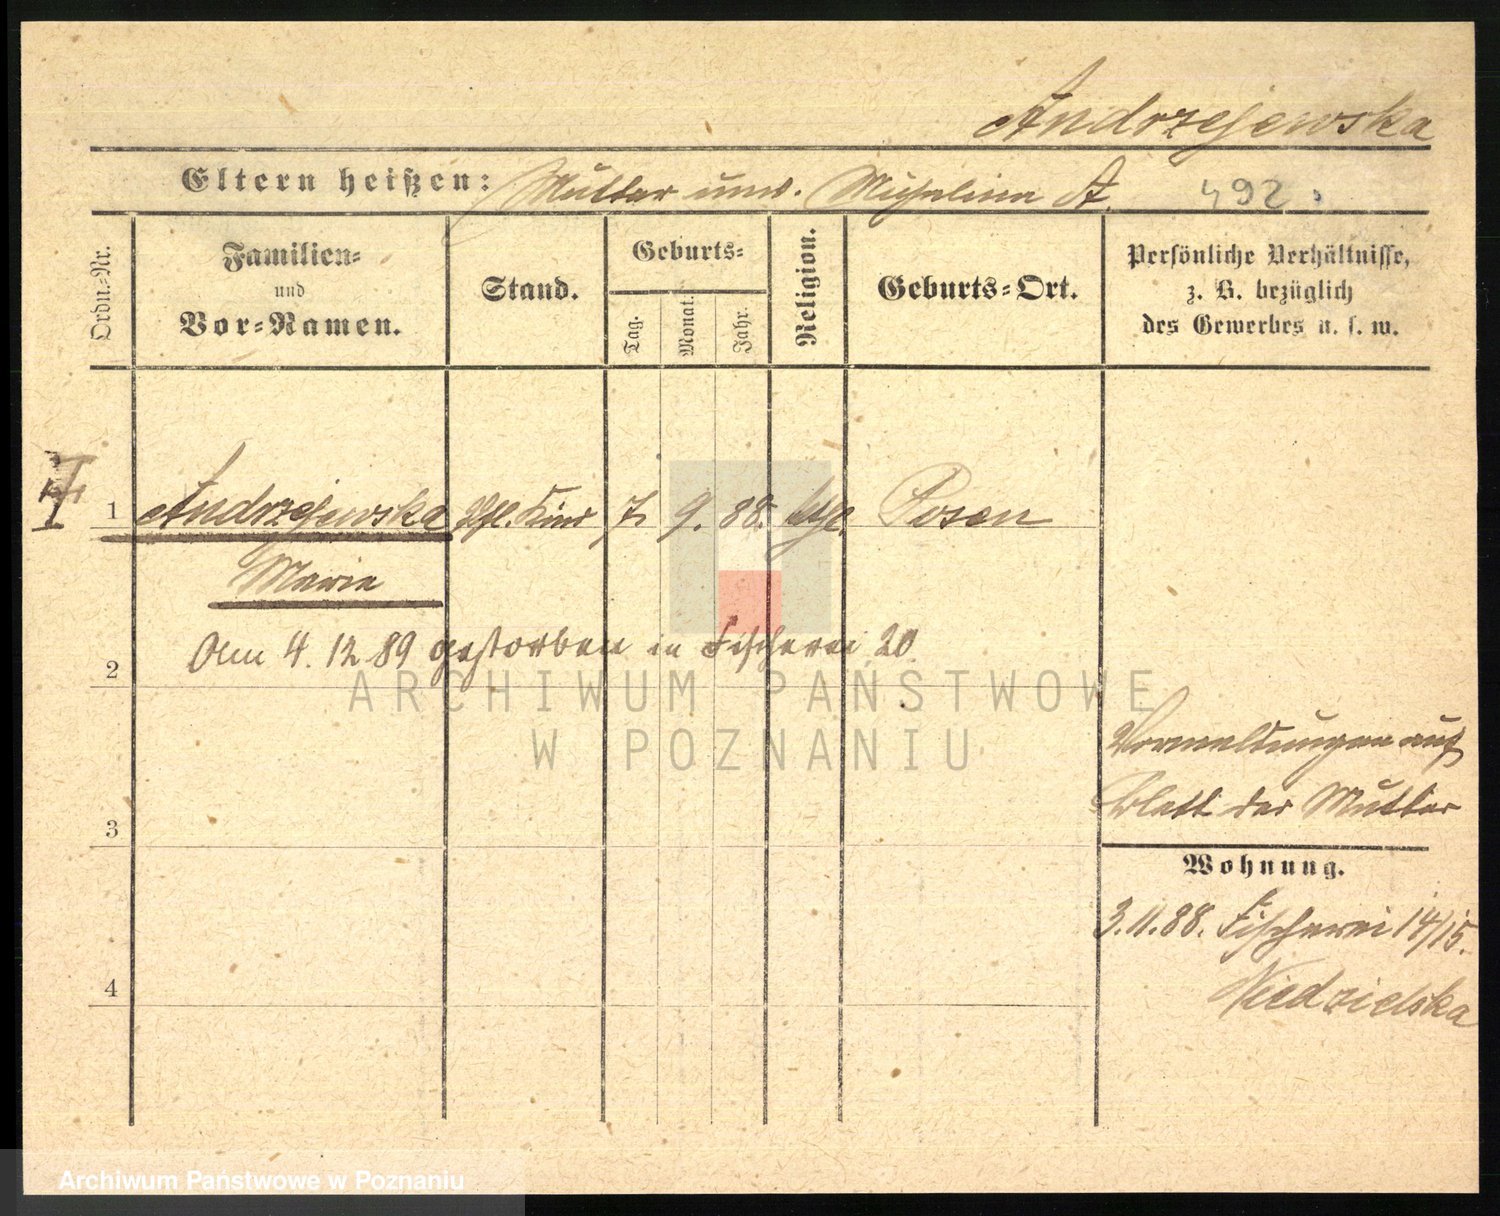 Andrzejewska
Eltern heißen: Mutter unv. Michalina A. 492.
Ordn.-Nr.
Familien-
und
Vor-Namen.
Stand.
Geburts-
Tag.
Monat.
Jahr.
Religion.
Geburts-Ort.
Persönliche Verhältnisse,
z. B. bezüglich
des Gewerbes u. s. w.
1 Andrzejewska Pfl. Kind 7. 9. 88. kth. Posen
Marie
Am 4. 12. 89 gestorben in Fischerei 20.
2
ARCHIWUM PAŃSTWOWE
W POZNANIU
Vormeldungen auf
Blatt der Mutter
3
Wohnung.
3.11.88. Fischerei 14/15.
Niedzielska
4
Archiwum Państwowe w Poznaniu